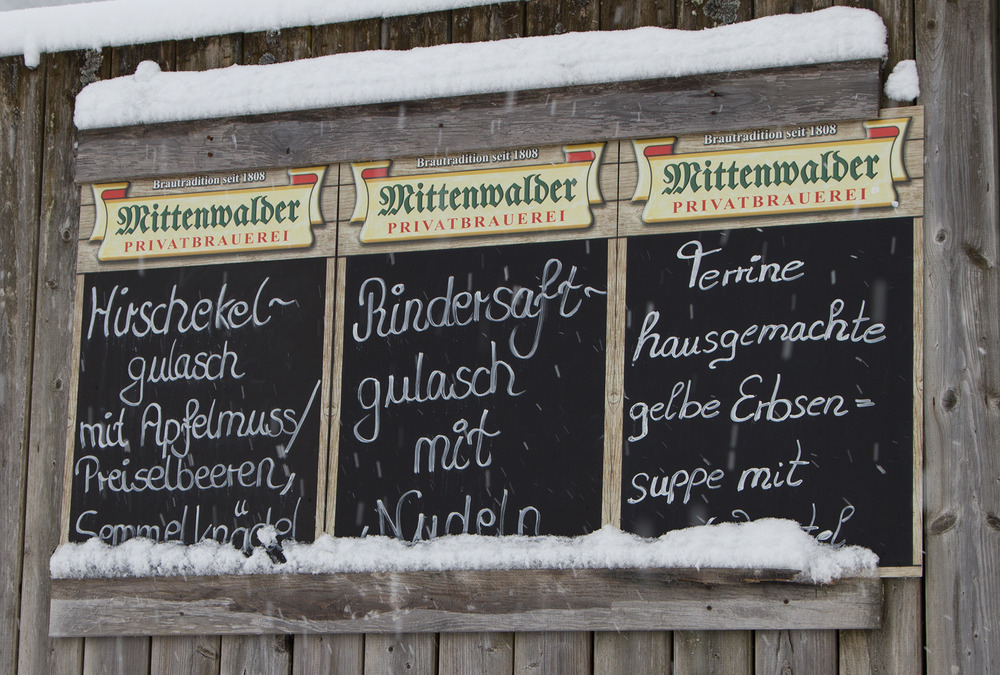 Brautradition seit 1808
Mittenwalder
PRIVATBRAUEREI
Hirschekel-
gulasch
mit Apfelmuss/
Preiselbeeren,
Semmelknödel
Brautradition seit 1808
Mittenwalder
PRIVATBRAUEREI
Rindersaft-
gulasch
mit
Nudeln
Brautradition seit 1808
Mittenwalder
PRIVATBRAUEREI
Terrine
hausgemachte
gelbe Erbsen=
suppe mit